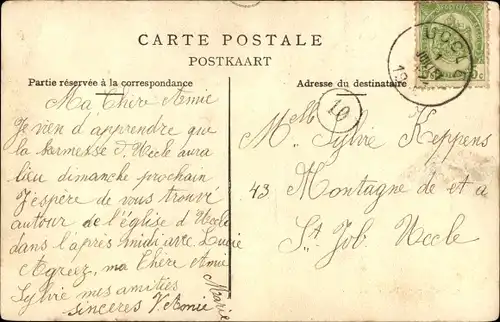 CARTE POSTALE
POSTKAART
Partie réservée à la correspondance
Adresse du destinataire
UCCLE
10
Ma Chère Amie
Je vien d'apprendre que
la kermesse d'Uccle aura
lieu dimanche prochain
J'espère de vous trouvé
autour de l'église d'Uccle
dans l'après midi avec Lucie
Agreez, ma Chère Amie
Sylvie mes amitiés
sincères
Marie
Melle Sylvie Keppens
43 Montagne de et a
St. Job. Uccle